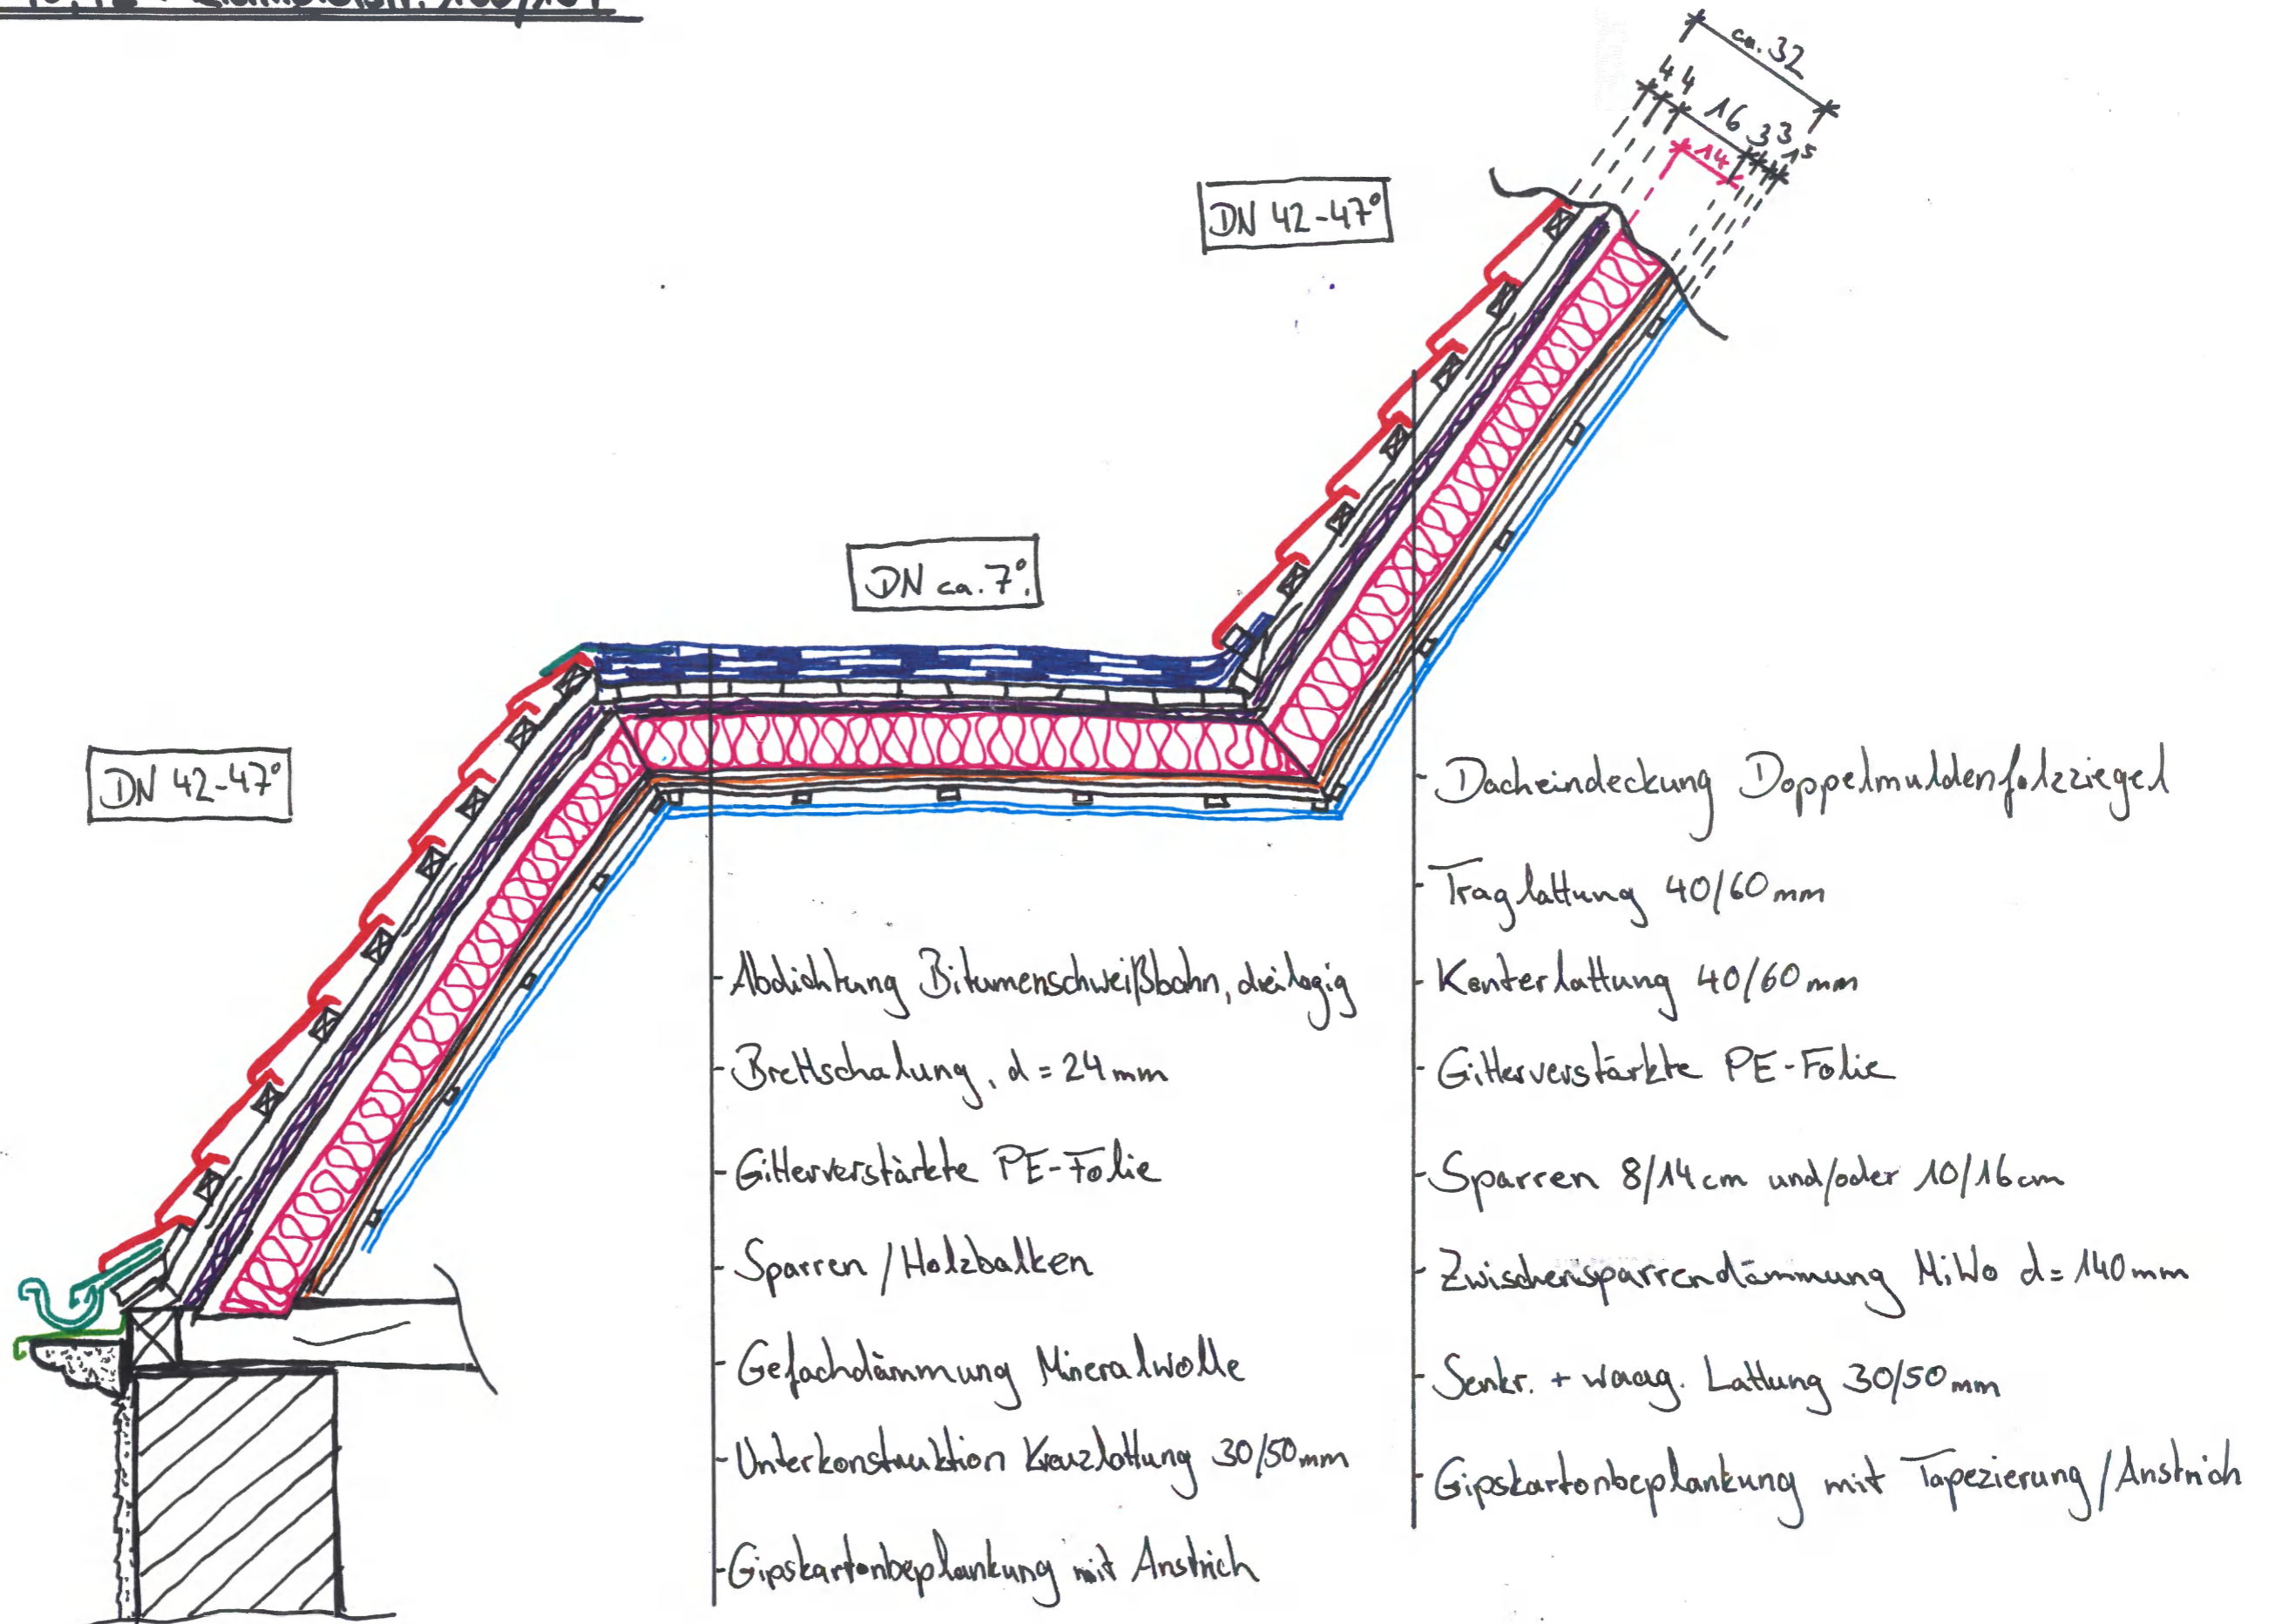 ca. 32
4 4 16 3 3 1⁵
14
DN 42-47°
DN ca. 7°
DN 42-47°
Abdichtung Bitumenschweißbahn, dreilagig
Brettschalung, d = 24 mm
Gitterverstärkte PE-Folie
Sparren / Holzbalken
Gefachdämmung Mineralwolle
Unterkonstruktion Kreuzlattung 30/50 mm
Gipskartonbeplankung mit Anstrich
Dacheindeckung Doppelmuldenfalzziegel
Traglattung 40/60 mm
Konterlattung 40/60 mm
Gitterverstärkte PE-Folie
Sparren 8/14 cm und/oder 10/16 cm
Zwischensparrendämmung MiWo d = 140 mm
Senkr. + waag. Lattung 30/50 mm
Gipskartonbeplankung mit Tapezierung / Anstrich